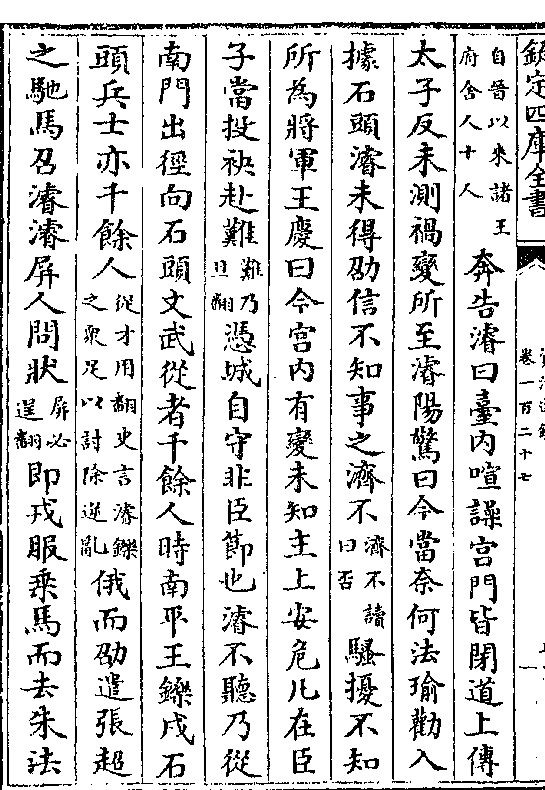 欽定四庫全書
卷一百二十七
自晉以來諸王府舍人十人奔告濬曰臺内喧譟宫門皆閉道上傳
太子反未測禍變所至濬陽驚曰今當奈何法瑜勸入
據石頭濬未得劭信不知事之濟不濟不讀曰否騷擾不知
所為將軍王慶曰今宫内有變未知主上安危凡在臣
子當投袂赴難難乃旦翻憑城自守非臣節也濬不聽乃從
南門出徑向石頭文武從者千餘人時南平王鑠戍石
頭兵士亦千餘人從才用翻史言濬鑠之衆足以討除逆亂俄而劭遣張超
之馳馬召濬濬屏人問狀屏必逞翻即戎服乘馬而去朱法